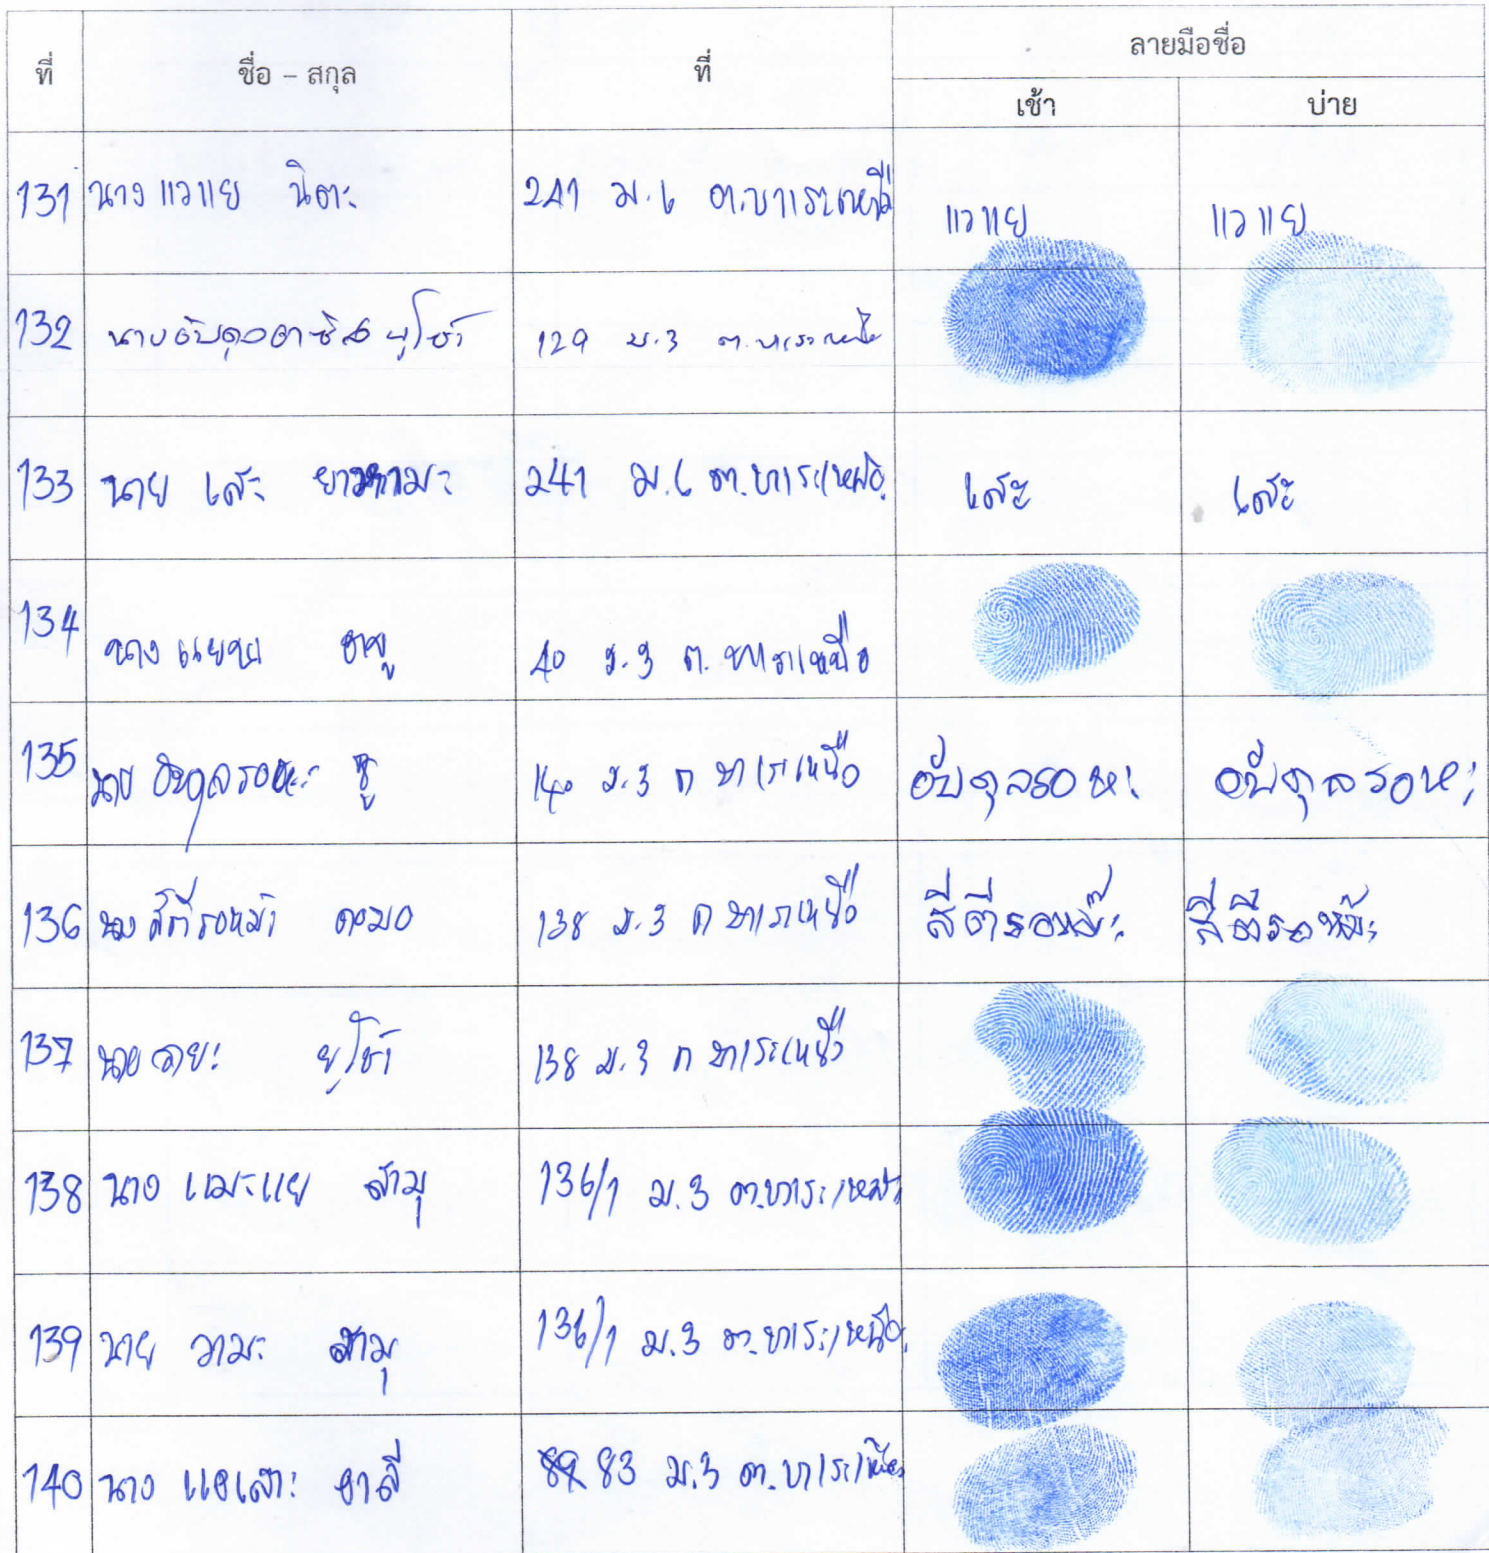 ที่ ชื่อ – สกุล ที่ ลายมือชื่อ
เช้า บ่าย
131 นางแวแย นิตะ 241 ม.6 ต.บาเระเหนือ แวแย แวแย
132 129 ม.3 ต.บาเระเหนือ
133 นาย เส๊ะ 241 ม.6 ต.บาเระเหนือ เส๊ะ เส๊ะ
134 นาง 40 ม.3 ต.บาเระเหนือ
135 นาย อับดุลรอหะ 140 ม.3 ต บาเระเหนือ อับดุลรอหะ อับดุลรอหะ
136 นาง สีตีรอหม๊ะ ดอมอ 138 ม.3 ต บาเระเหนือ สีตีรอหม๊ะ สีตีรอหม๊ะ
137 นาย ยูโซ๊ะ 138 ม.3 ต บาเระเหนือ
138 นาง แมะแย สามุ 136/1 ม.3 ต.บาเระเหนือ
139 นาย วามะ สามุ 136/1 ม.3 ต.บาเระเหนือ
140 นาง อาลี 83 ม.3 ต.บาเระเหนือ